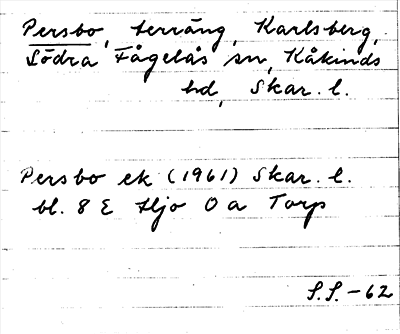 Persbo, terräng, Karlsberg,
Södra Fågelås sn, Kåkinds
hd, Skar. l.
Persbo ek (1961) Skar. l.
bl. 8 E Hjo O a Torp
S.S. -62